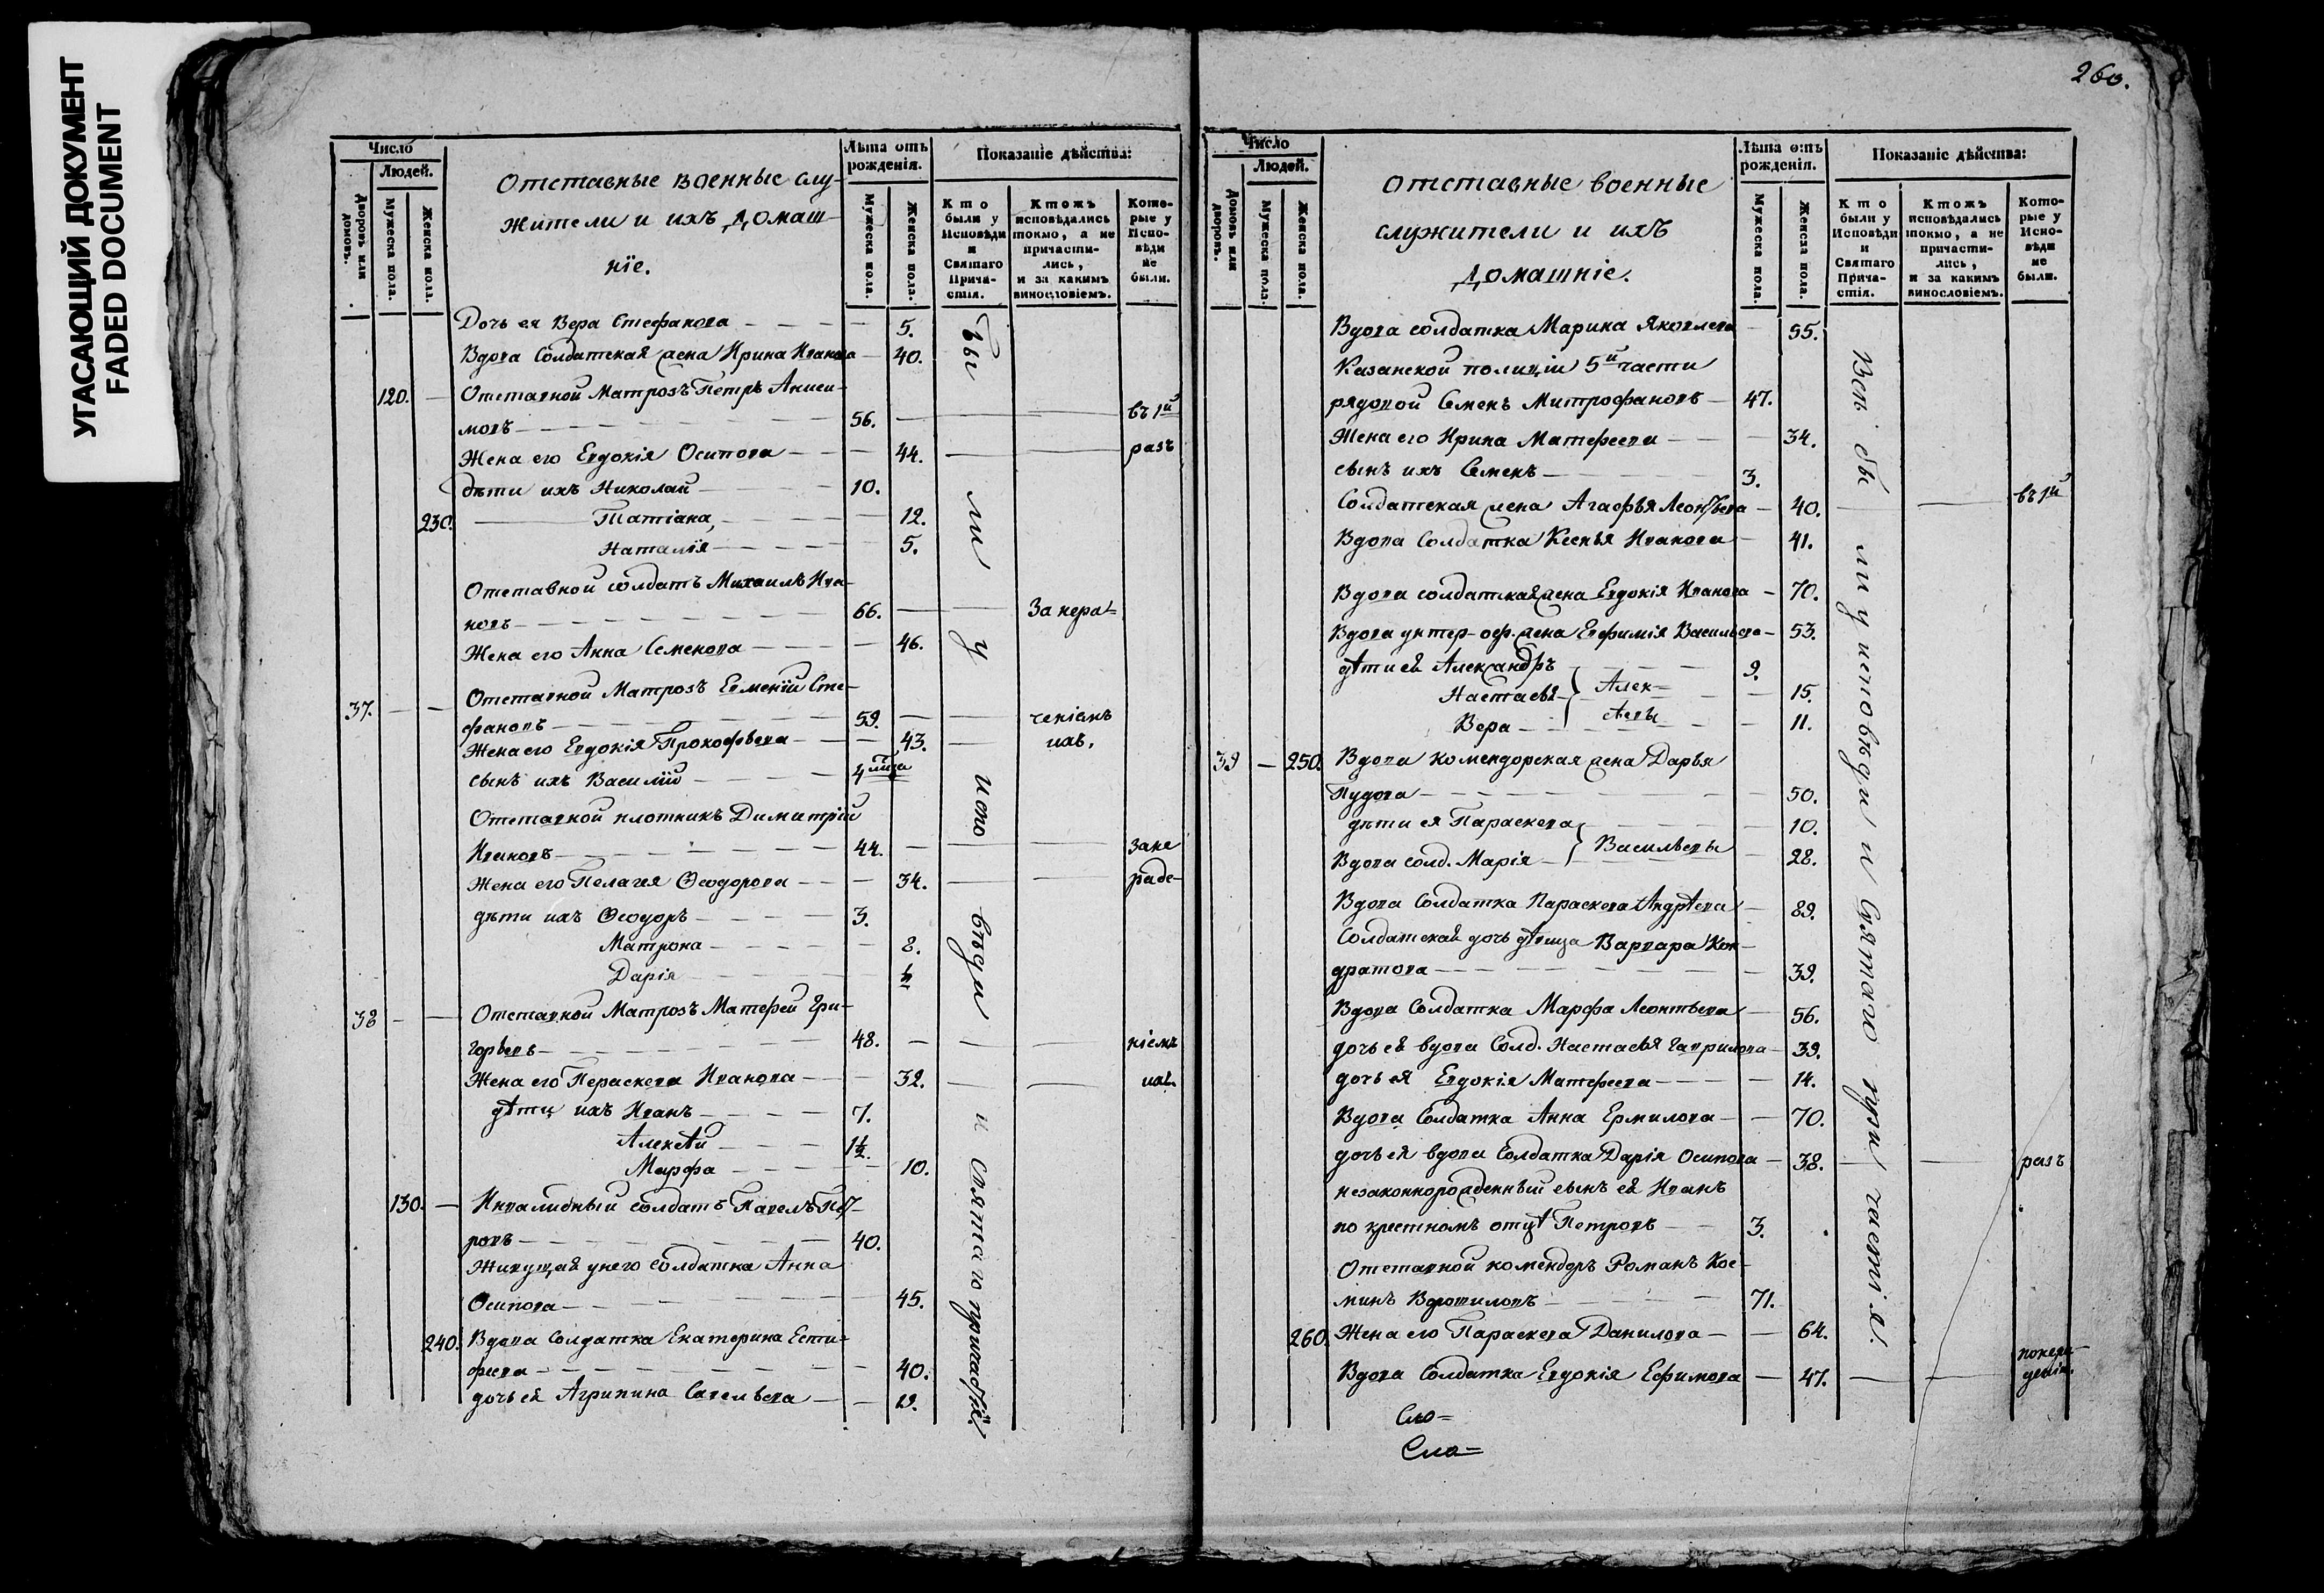 УГАСАЮЩИЙ ДОКУМЕНТ
FADED DOCUMENT
Число
Людей.
Дворовъ или домовъ.
Мужеска пола.
Женска пола.
Отставные военные слу-
жители и ихъ домаш-
нїе.
Лѣта отъ рожденїя.
Мужеска пола.
Женска пола.
Показанїе дѣйства:
Кто были у Исповѣди и Святаго Прича-стїя.
Ктожъ исповѣдались токмо, а не причасти-лись, и за какимъ винословїемъ.
Кото-рые у Испо-вѣди не были.
Дочь ея Вера Стефанова — 5.
Вдова Солдатская жена Ирина Иванова — 40.
120. — Отставной Матрозъ Петръ Аниси-
мовъ — 56. — въ 1й
Жена его Евдокія Осипова — 44. — разъ
дѣти ихъ Николай — 10.
230. — Татіана — 12.
Наталїя — 5.
Отставной солдатъ Михаилъ Ива-
новъ — 66. — За нера=
Жена его Анна Семенова — 46.
37. — Отставной Матрозъ Евменїй Сте-
фановъ — 59. — ченіемъ
Жена его Евдокія Прокофьева — 43. — ихъ.
сынъ ихъ Василїй — 4
Отставной плотникъ Димитрїй
Ивановъ — 44. — зане
Жена его Пелагея Ѳеодорова — 34. — раде-
дѣти ихъ Ѳеодоръ — 3.
Матрона — 8.
Дарія — ½
38 — Отставной Матрозъ Матфей Гри-
горьевъ — 48. — ніемъ
Жена его Параскева Иванова — 32. — ихъ.
дѣти ихъ Иванъ — 7.
Алексѣй — 1½.
Марфа — 10.
130. — Инвалидный солдатъ Павелъ Пет-
ровъ — 40.
Живущая у него солдатка Анна
Осипова — 45.
240. Вдова Солдатка Екатерина Ести-
феева — 40.
дочь ея Агрипина Савельева — 19.
Бы ли у испо вѣди и Святаго причастїя.
260.
Число
Людей.
Домовъ или дворовъ.
Мужеска пола.
Женска пола.
Отставные военные
служители и ихъ
домашніе.
Лѣта отъ рожденїя.
Мужеска пола.
Женска пола.
Показанїе дѣйства:
Кто были у Исповѣди и Святаго Прича-стїя.
Ктожъ исповѣдались токмо, а не причасти-лись, и за какимъ винословїемъ.
Кото-рые у Испо-вѣди не были.
Вдова солдатка Марина Яковлева — 55.
Казанской полиціи 5й части
рядовой Семенъ Митрофановъ — 47.
Жена его Ирина Матфеева — 34.
сынъ ихъ Семенъ — 3.
Солдатская жена Агафья Леонтьева — 40. — въ 1й
Вдова Солдатка Ксенья Иванова — 41.
Вдова солдатская жена Евдокія Иванова — 70.
Вдова унтер-оф. жена Евфимія Васильева — 53.
дѣти ея Александръ — 9.
Настасья } Алек= — 15.
Вера } сѣевы — 11.
39 — 250. Вдова комендорская жена Дарья
Пудова — 50.
дѣти ея Параскева } — 10.
Вдова солд. Марія } Васильевы — 28.
Вдова Солдатка Параскева Андрѣева — 89.
Солдатская дочь дѣвица Варвара Кон-
дратова — 39.
Вдова Солдатка Марфа Леонтьева — 56.
дочь ея вдова Солд. Настасья Гаврилова — 39.
дочь ея Евдокія Матфеева — 14.
Вдова Солдатка Анна Ермилова — 70.
дочь ея вдова Солдатка Дарія Осипова — 38. — разъ
незаконнорожденный сынъ ея Иванъ
по крестномъ отцѣ Петровъ — 3.
Отставной комендоръ Романъ Кос-
минъ Воротиловъ — 71.
260. Жена его Параскева Данилова — 64.
Вдова Солдатка Евдокія Ефимова — 47.
Всѣ бы ли у исповѣди и Святаго при частія.
Сло=
Сло=